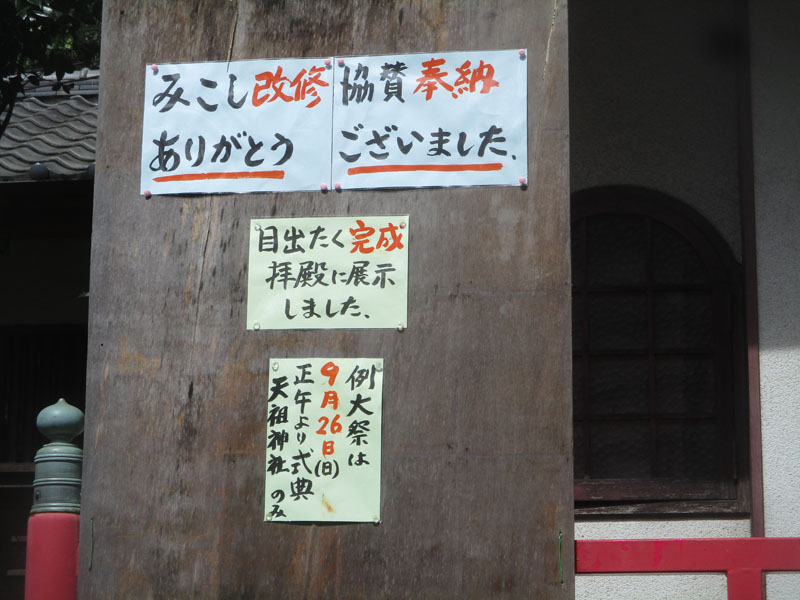 みこし改修
ありがとう
協賛奉納
ございました、
目出たく完成
拝殿に展示
しました、
例大祭は
9月26日(日)
正午より式典
天祖神社のみ